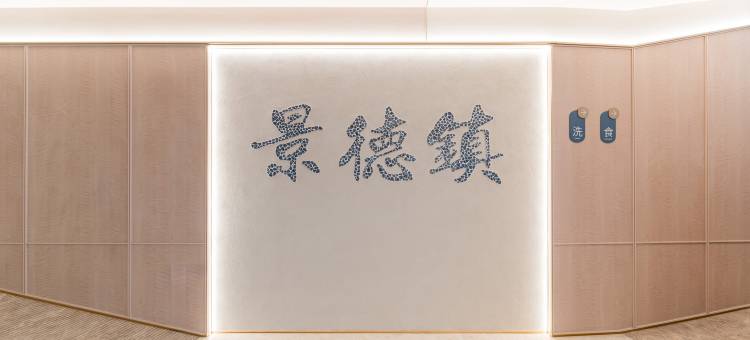 景德鎮
洗 食